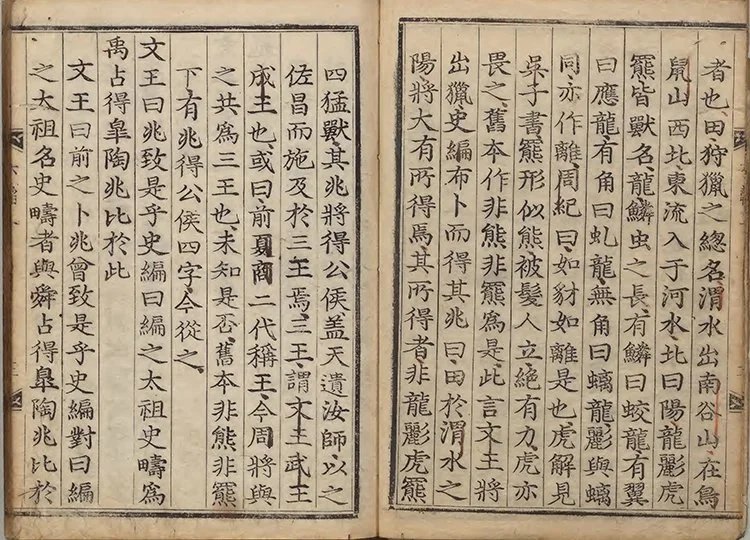 者也、田狩獵之緫名、渭水出南谷山、在鳥
鼠山西北東流入于河水、北曰陽龍彲虎
羆皆獸名、龍鱗虫之長、有鱗曰蛟龍有翼
曰應龍、有角曰虬龍、無角曰螭龍、彲與螭
同、亦作離、周紀曰、如豺如離是也虎解見
吳子書羆形似熊被髮人立絶有力虎亦
畏之、舊本作非熊非羆爲是、此言文王將
出獵、史編布卜而得其兆曰、田於渭水之
陽、將大有所得焉其所得者非龍彲虎羆
四猛獸、其兆將得公侯盖天遺汝師、以之
佐昌而施及於三王焉、三王、謂文王武王
成王也、或曰、前夏商二代稱王、今周將與
之共爲三王也、未知是否、舊本非熊非羆
下有兆得公侯四字、今從之、
文王曰兆致是乎史編曰編之太祖史疇爲
禹占得皐陶兆比於此
文王曰前之卜兆曾致是乎史編對曰編
之太祖名史疇者與舜占得皐陶兆比於